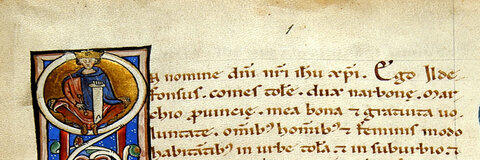 1
n nomine dñi nr̃i ihũ xp̃i. Ego Ilde
fonsus. comes tolẽ. dux narbonę. mar
chio ꝓuincię. mea bona ⁊ gratuita uo
luntate. om̃ibꝰ hom̃ibꝰ ⁊ feminis modo
habitãtibꝰ in urbe tol̃a ⁊ in suburbio ⁊